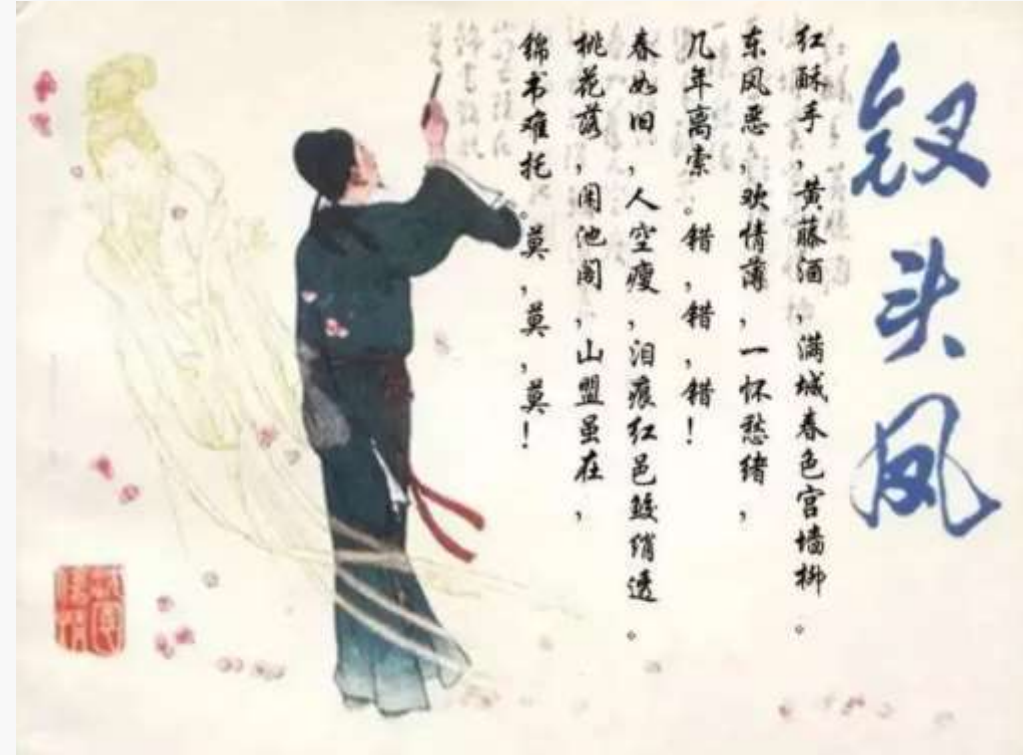 钗头凤
红酥手,黄藤酒,满城春色宫墙柳。
东风恶,欢情薄,一怀愁绪,
几年离索。错,错,错!
春如旧,人空瘦,泪痕红邑鲛绡透。
桃花落,闲池阁,山盟虽在,
锦书难托。莫,莫,莫!